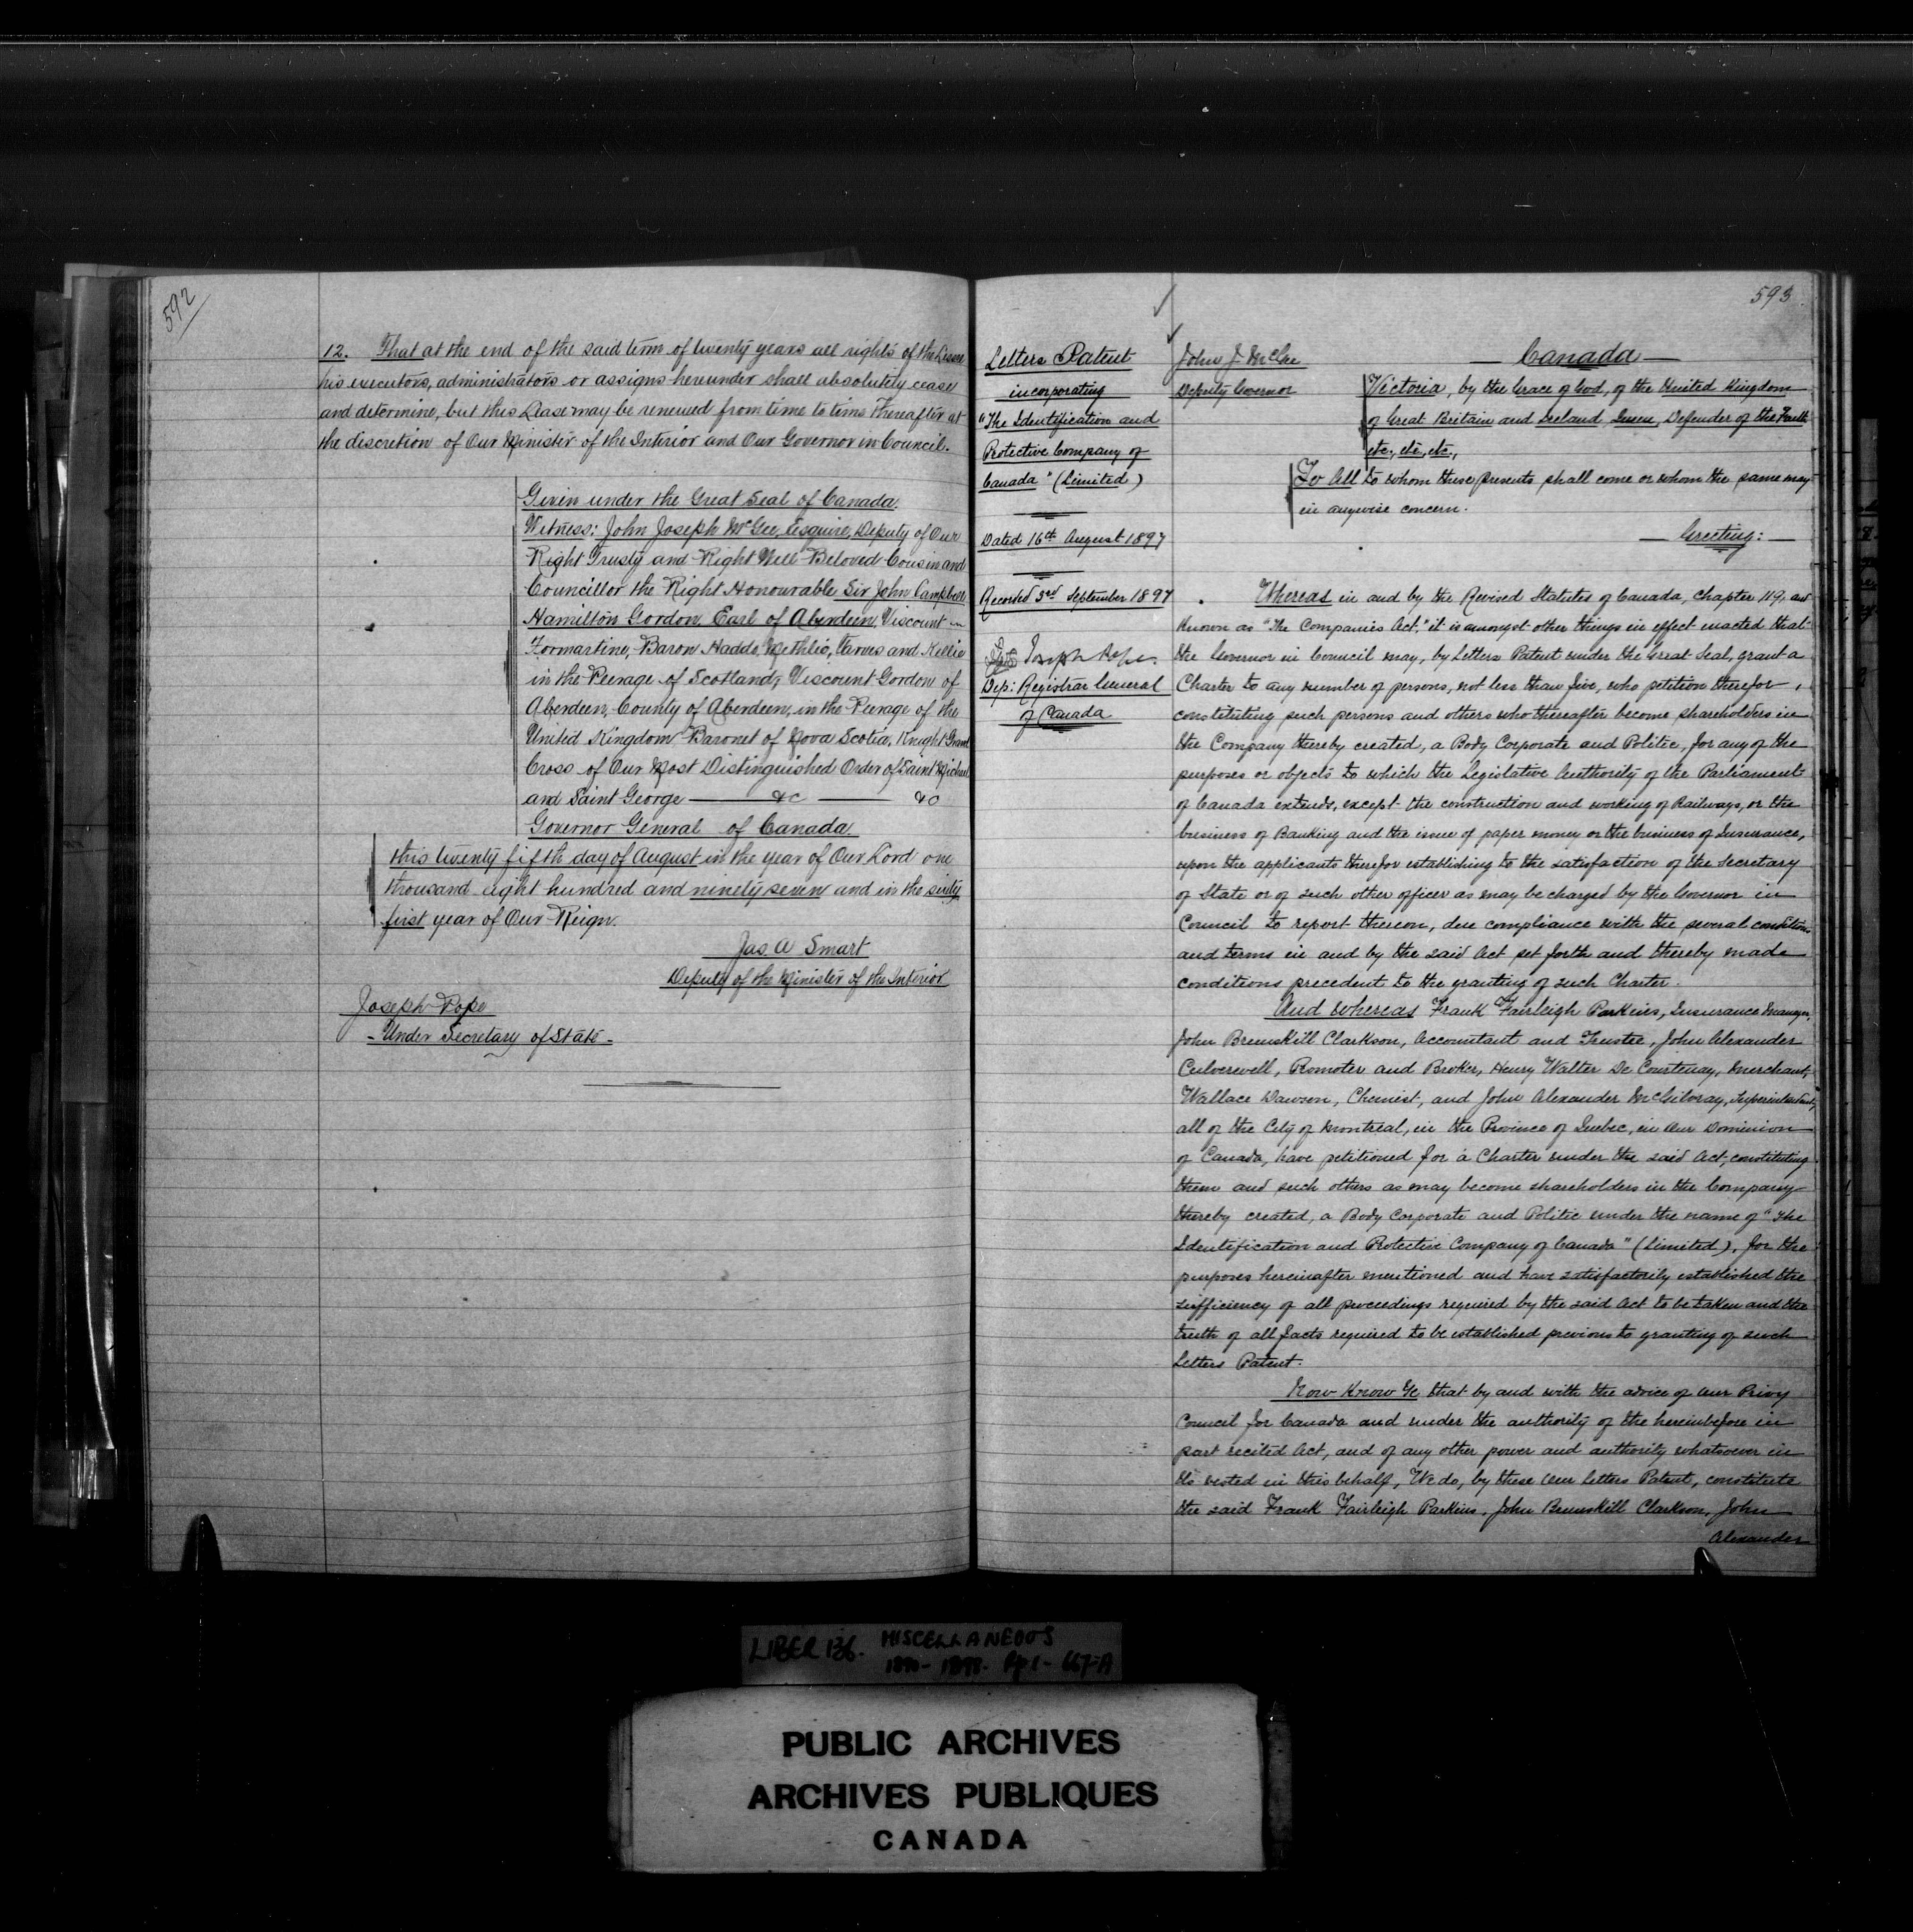 592
12. That at the end of the said term of twenty years all rights of the Lessee
his executors, administrators or assigns hereunder shall absolutely cease
and determine, but this Lease may be renewed from time to time thereafter at
the discretion of Our Minister of the Interior and Our Governor in Council.
Given under the Great Seal of Canada.
Witness: John Joseph McGee, Esquire, Deputy of Our
Right Trusty and Right Well Beloved Cousin and
Councillor the Right Honourable Sir John Campbell
Hamilton Gordon, Earl of Aberdeen, Viscount
Formartine, Baron Haddo, Methlic, Tarves and Kellie
in the Peerage of Scotland, Viscount Gordon of
Aberdeen, County of Aberdeen, in the Peerage of the
United Kingdom Baronet of Nova Scotia, Knight Grand
Cross of Our Most Distinguished Order of Saint Michael
and Saint George — &c — &c
Governor General of Canada
this twenty fifth day of August in the year of Our Lord one
thousand eight hundred and ninety seven and in the sixty
first year of Our Reign.
Jas. A Smart
Deputy of the Minister of the Interior
Joseph Pope
- Under Secretary of State -
593
Letters Patent
incorporating
"The Identification and
Protective Company of
Canada" (Limited)
Dated 16th August 1897
Recorded 3rd September 1897
Joseph Pope.
Dep: Registrar General
of Canada
John J. McGee
Deputy Governor
— Canada —
Victoria, by the Grace of God, of the United Kingdom
of Great Britain and Ireland Queen, Defender of the Faith
etc., etc., etc.,
To All to whom these presents shall come or whom the same may
in anywise concern.
— Greeting: —
Whereas in and by the Revised Statutes of Canada, Chapter 119, and
known as "The Companies Act," it is amongst other things in effect enacted that
the Governor in Council may, by Letters Patent under the Great Seal, grant a
Charter to any number of persons, not less than five, who petition therefor,
constituting such persons and others who thereafter become shareholders in
the Company thereby created, a Body Corporate and Politic, for any of the
purposes or objects to which the Legislative Authority of the Parliament
of Canada extends, except the construction and working of Railways, or the
business of Banking and the issue of paper money or the business of Insurance,
upon the applicants therefor establishing to the satisfaction of the Secretary
of State or of such other officer as may be charged by the Governor in
Council to report thereon, due compliance with the several conditions
and terms in and by the said Act set forth and thereby made
conditions precedent to the granting of such Charter.
And whereas Frank Fairleigh Parkins, Insurance Manager,
John Bremskill Clarkson, Accountant and Trustee, John Alexander
Culverwell, Promoter and Broker, Henry Walter De Courtenay, Merchant,
Wallace Dawson, Chemist, and John Alexander McGilvray, Superintendent,
all of the City of Montreal, in the Province of Quebec, in Our Dominion
of Canada, have petitioned for a Charter under the said Act, constituting
them and such others as may become shareholders in the Company
thereby created, a Body Corporate and Politic under the name of "The
Identification and Protective Company of Canada" (Limited), for the
purposes hereinafter mentioned and have satisfactorily established the
sufficiency of all proceedings required by the said Act to be taken and the
truth of all facts required to be established previous to granting of such
Letters Patent.
Now Know Ye that by and with the advice of Our Privy
Council for Canada and under the authority of the hereinbefore in
part recited Act, and of any other power and authority whatsoever in
Us vested in this behalf, We do, by these Our Letters Patent, constitute
the said Frank Fairleigh Parkins, John Bremskill Clarkson, John
Alexander
LIBER 136. MISCELLANEOUS
1890-1898. Pp 1-667-A
PUBLIC ARCHIVES
ARCHIVES PUBLIQUES
CANADA